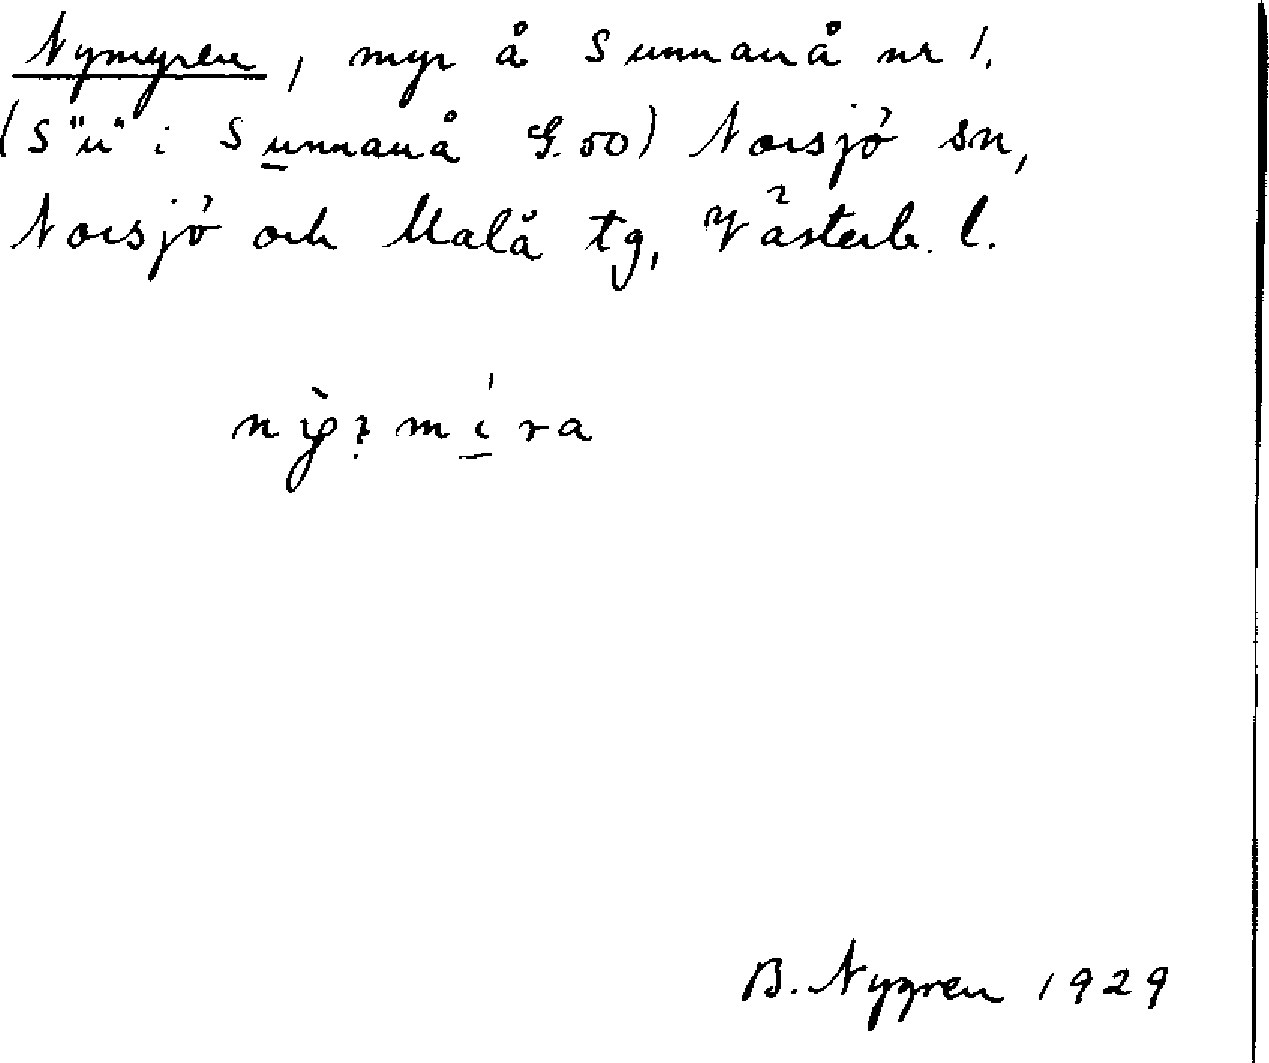 Nymyren, myr å Sunnanå nr 1.
(S "u" i Sunnanå G. 50) Norsjö sn,
Norsjö och Malå tg, Västerb. l.
B. Nygren 1929